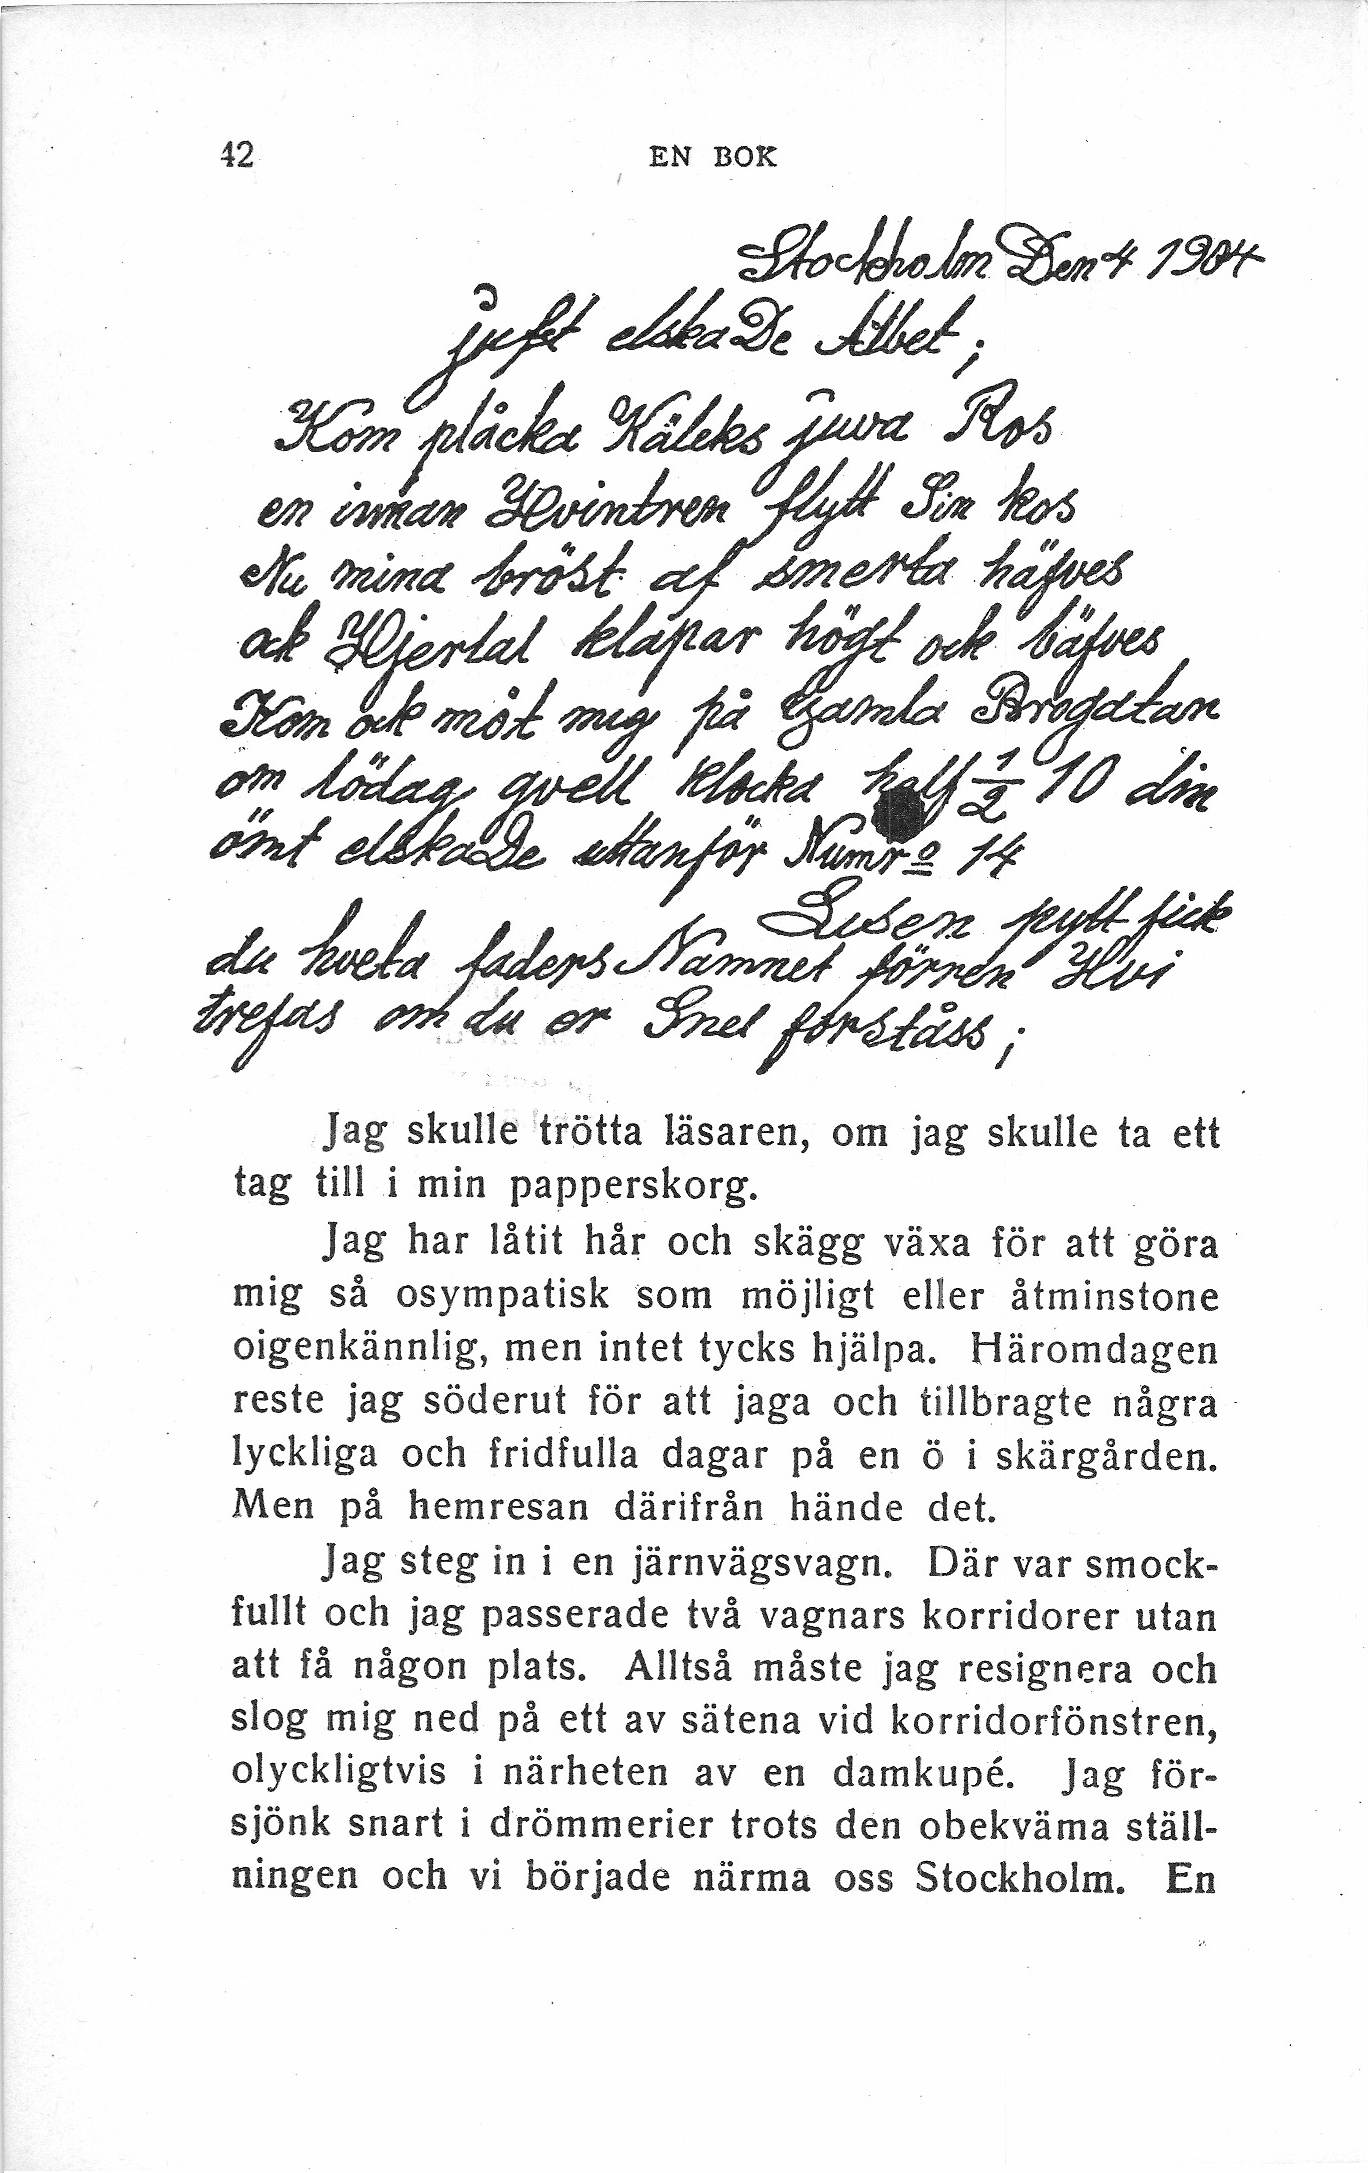 42 EN BOK
Stockholm Den 4 1904
juft elskaDe Albet;
Kom plåcka Käleks juva Ros
en innan Hvintren flytt Sin kos
Nu mina bröst af smerta häfves
ock Hjertat klapar högt ock bäfves
Kom ock möt mig på Gamla Brogatan
om lödag qvell klocka half 1/2 10 din
ömt elskaDe uttanför Numro 14
Lusen pytt fick
du hveta faders Namnet förren Hvi
trefas om du er Snel forståss;
Jag skulle trötta läsaren, om jag skulle ta ett
tag till i min papperskorg.
Jag har låtit hår och skägg växa för att göra
mig så osympatisk som möjligt eller åtminstone
oigenkännlig, men intet tycks hjälpa. Häromdagen
reste jag söderut för att jaga och tillbragte några
lyckliga och fridfulla dagar på en ö i skärgården.
Men på hemresan därifrån hände det.
Jag steg in i en järnvägsvagn. Där var smock-
fullt och jag passerade två vagnars korridorer utan
att få någon plats. Alltså måste jag resignera och
slog mig ned på ett av sätena vid korridorfönstren,
olyckligtvis i närheten av en damkupé. Jag för-
sjönk snart i drömmerier trots den obekväma ställ-
ningen och vi började närma oss Stockholm. En